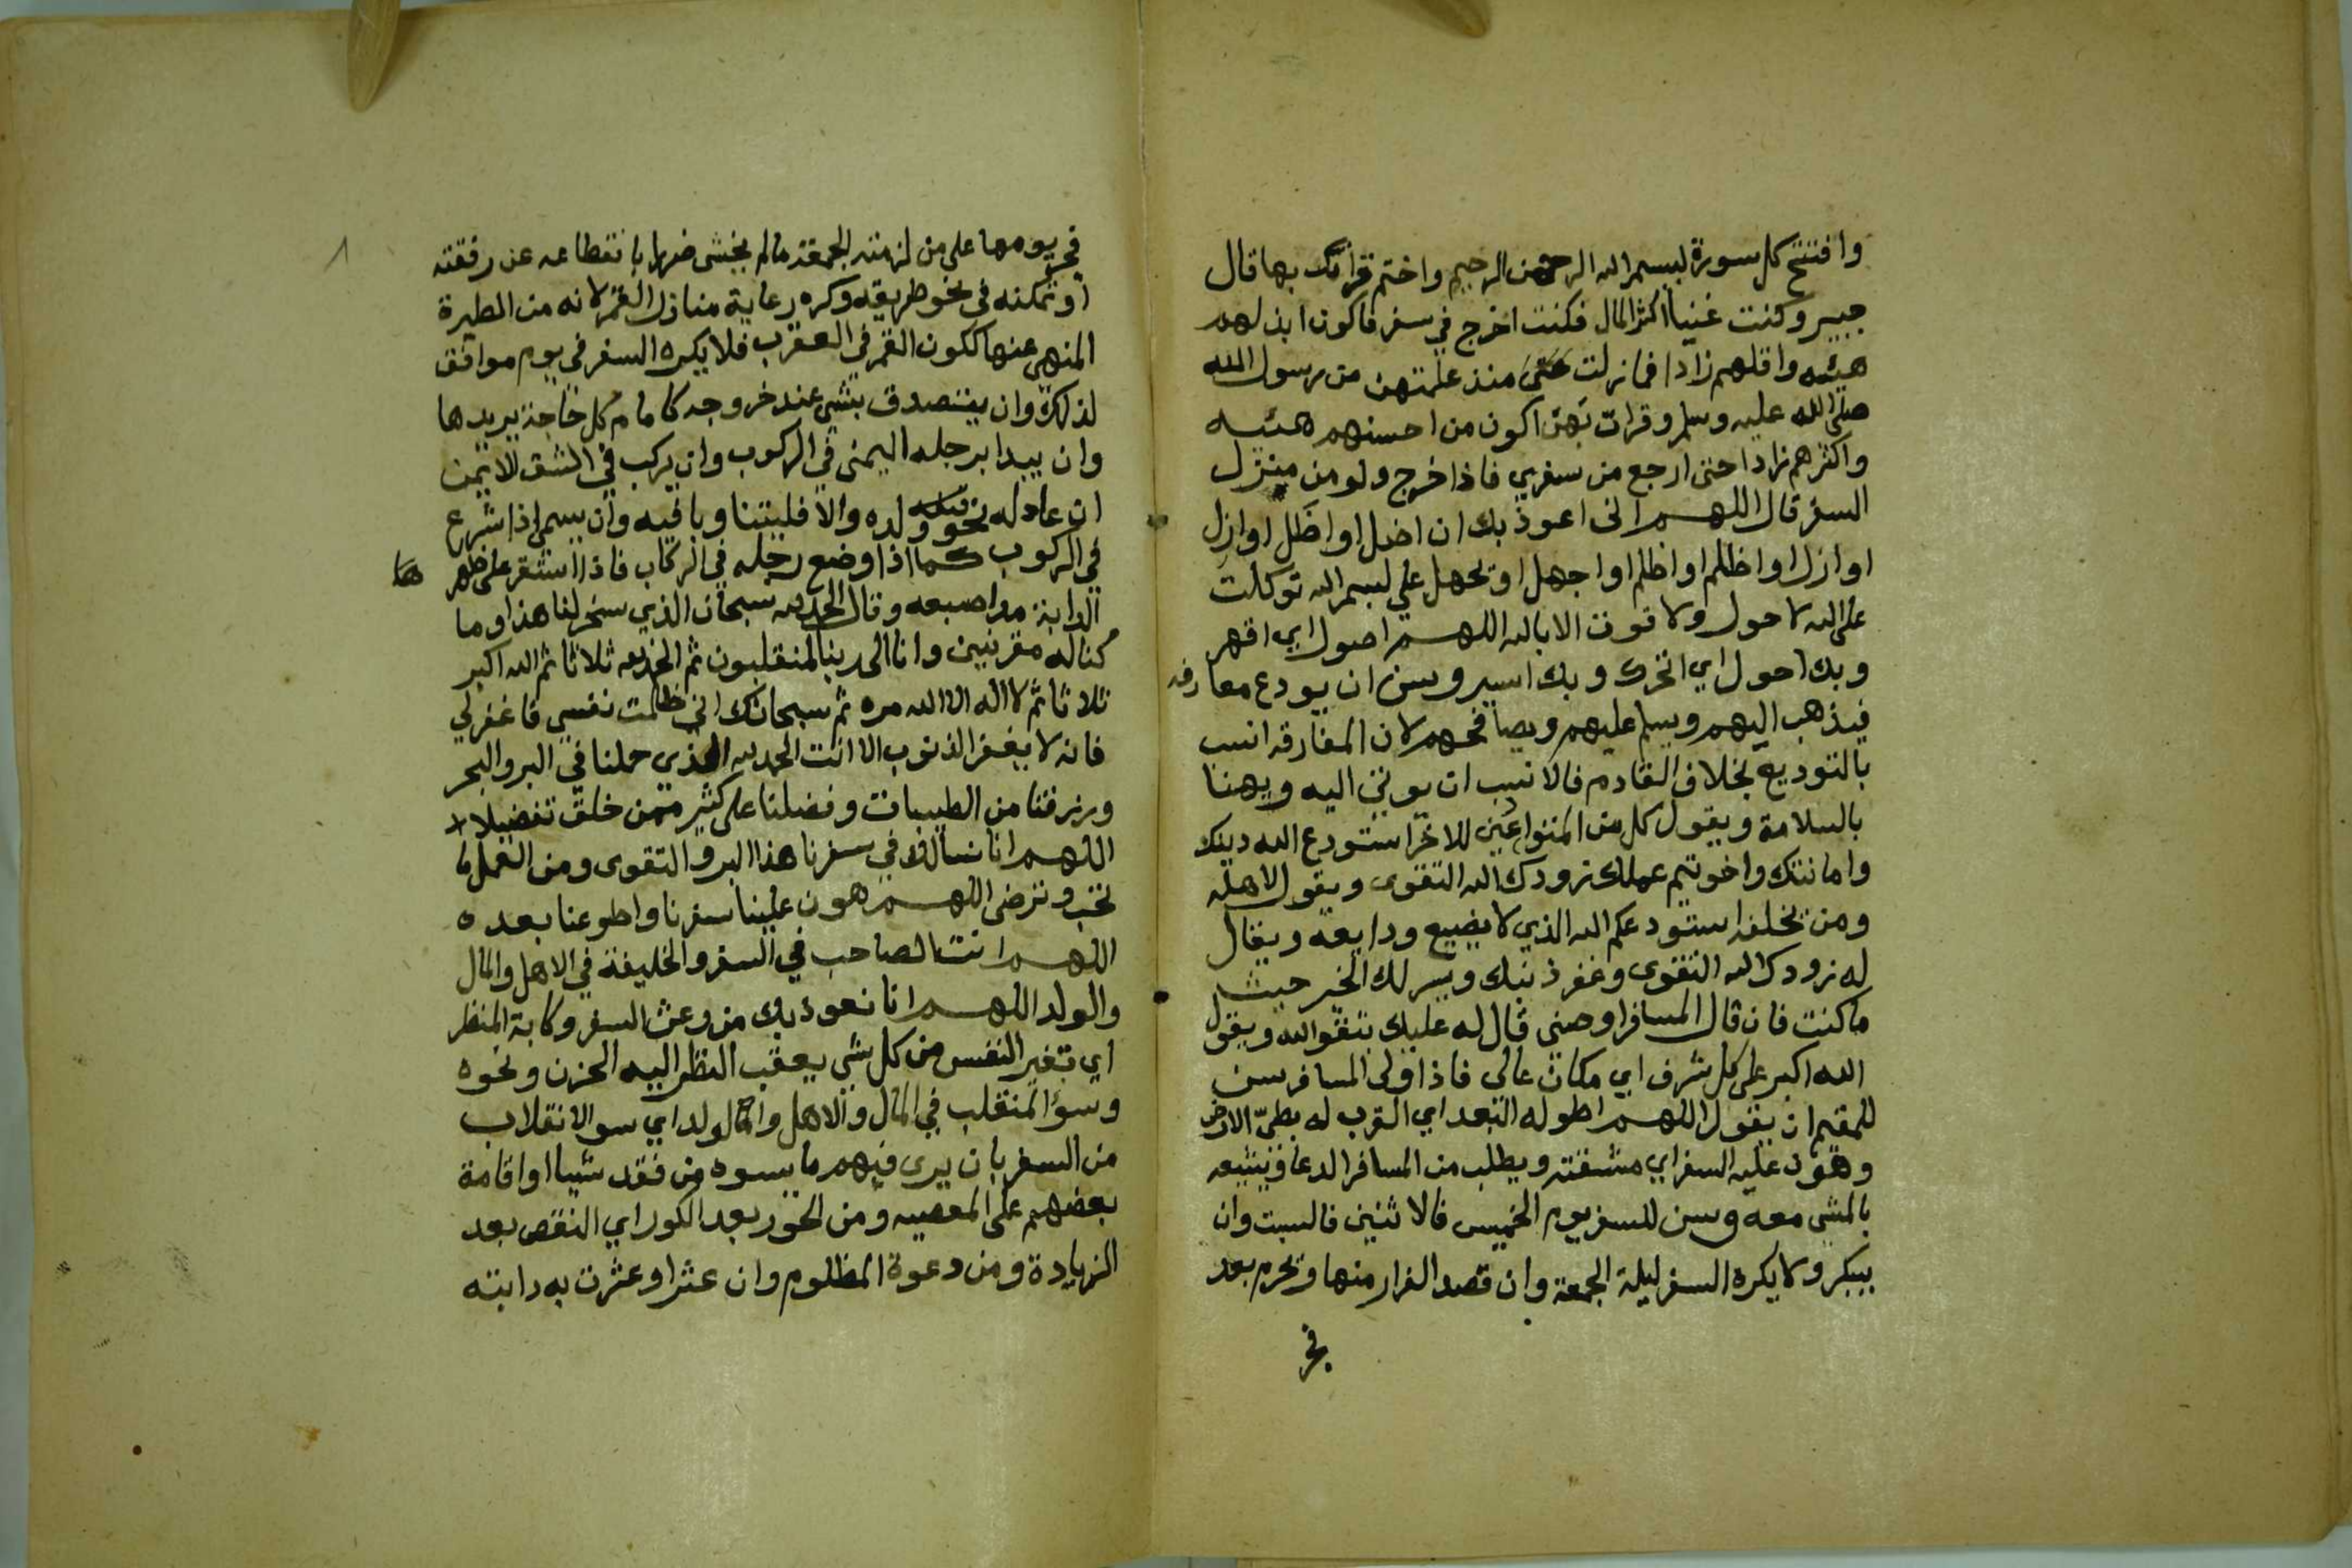 وافتتح كل سورة لبسم الله الرحمن الرحيم واختم قراتك بها قال
جبير وكنت غنيا اكثر المال فكنت اخرج في سفر فاكون ابذلهم
هيئه واقلهم زادا فما زلت منذ علمتهن من رسول الله
صلى الله عليه وسلم وقرات بهن اكون من احسنهم هيئه
واكثرهم زادا حتى ارجع من سفري فاذا خرج ولو من منزل
السفر قال اللهم اني اعوذ بك ان اضل او اضل او ازل
او ازل او اظلم او اظلم او اجهل او يجهل علي لبسم الله توكلت
على الله لا حول ولا قوت الا بالله اللهم اصول اي اقهر
وبك احول اي اتحرك وبك اسير وسن ان يودع معارفه
فيذهب اليهم ويسلم عليهم ويصافحهم لان المفارقه انسب
بالتوديع بخلاف القادم فالانسب ان يوتى اليه ويهنا
بالسلامة ويقول كل من المتواعين للاخر استودع الله دينك
وامانتك واخوتيم عملك زودك الله التقوى ويقول لاهله
ومن يخلفه استودعكم الله الذي لا يضيع ودايعه ويقال
له زودك الله التقوى وغفر ذنبك ويسر لك الخير حيث
ما كنت فان قال المسافر اوصنى قال له عليك بتقوا الله ويقول
الله اكبر على كل شرف اي مكان عالى فاذا ولى المسافر سن
للمقيم ان يقول اللهم اطوله البعد اي القرب له بطيّ الارض
وهون عليه السفر اي مشقته ويطلب من المسافر الدعا ويشيعه
بالمشي معه وسن للسفر يوم الخميس فالاثنين فالسبت وان
يبكر ولا يكره السفر ليلة الجمعة وان قصد الفرار منها وتحرم بعد
فجر
٨
فجر يومها على من لزمته الجمعة مالم يخشى ضررا بانقطاعه عن رفقته
او تمكنه في نحو طريقه وكره رعاية منازل القمر لانه من الطيرة
المنهى عنها ككون القمر في العقرب فلا يكره السفر في يوم موافق
لذلك وان يتصدق بشي عند خروجه كامام كل حاجة يريدها
وان يبدا برجله اليمنى في الركوب وان يركب في الشق الايمن
ان عادله نحو ولده والا فليتنا وبا فيه وان يسمى اذا شرع
في الركوب كما اذا وضع رجله في الركاب فاذا استقر على ظهرها
الدابة مد اصبعه وقال الحمد لله سبحان الذي سخر لنا هذا وما
كنا له مقرنين وانا الى ربنا لمنقلبون ثم الحمد لله ثلاثا ثم الله اكبر
ثلاثا ثم لا اله الا الله مره ثم سبحانك اني ظلمت نفسي فاغفرلي
فانه لا يغفر الذنوب الا انت الحمد لله الذي حملنا في البر والبحر
ورزقنا من الطيبات وفضلنا على كثير ممن خلق تفضيلا
اللهم انا نسالك في سفرنا هذا البر والتقوى ومن العمل ما
تحب وترضى اللهم هون علينا سفرنا واطوعنا بعده
اللهم انت الصاحب في السفر والخليفة في الاهل والمال
والولد اللهم انا نعوذ بك من وعث السفر وكابة المنظر
اي تغير النفس من كل شي يعقب النظر اليه الحزن ونحوه
وسوٓ المنقلب في المال والاهل والولد اي سو الانقلاب
من السفر بان يرى فيهم ما يسوه من فقد شيا او اقامة
بعضهم على المعصيه ومن الحور بعد الكور اي النقص بعد
الزيادة ومن دعوة المظلوم وان عثر او عثرت به دابته